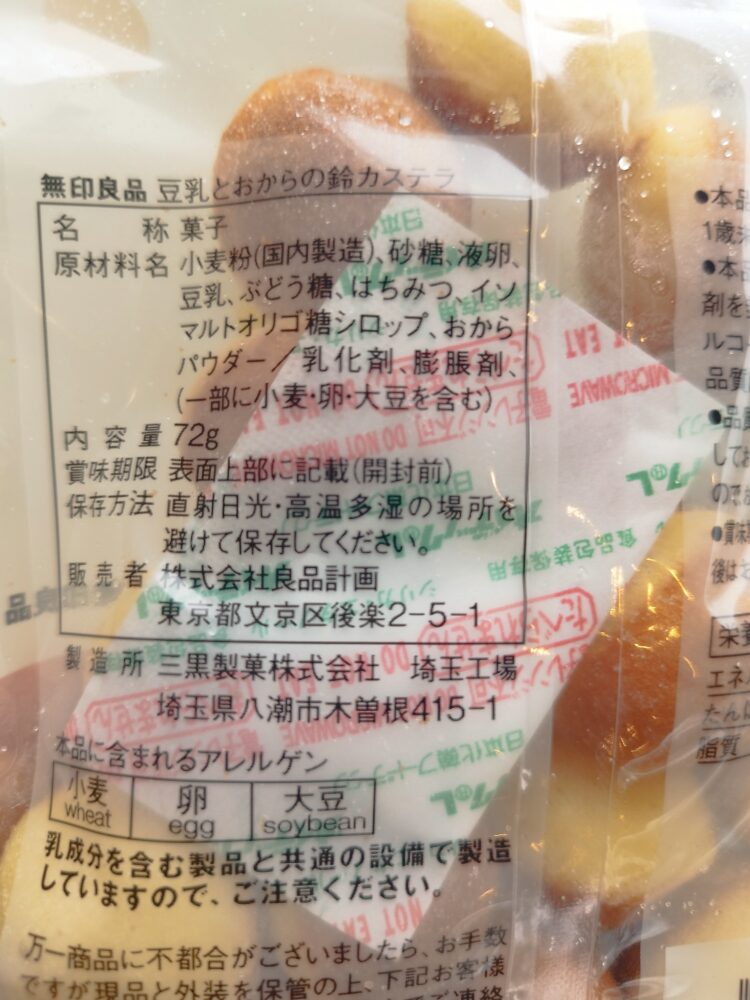 無印良品 豆乳とおからの鈴カステラ
名称 菓子
原材料名 小麦粉(国内製造)、砂糖、液卵、
豆乳、ぶどう糖、はちみつ、イソ
マルトオリゴ糖シロップ、おから
パウダー／乳化剤、膨脹剤、
(一部に小麦・卵・大豆を含む)
内容量 72g
賞味期限 表面上部に記載(開封前)
保存方法 直射日光・高温多湿の場所を
避けて保存してください。
販売者 株式会社良品計画
東京都文京区後楽2-5-1
製造所 三黒製菓株式会社 埼玉工場
埼玉県八潮市木曽根415-1
本品に含まれるアレルゲン
小麦 卵 大豆
wheat egg soybean
乳成分を含む製品と共通の設備で製造
していますので、ご注意ください。
万一商品に不都合がございましたら、お手数
ですが現品と外装を保管の上、下記お客様
●本品
1歳未
●本品
剤を
ルコー
品質
●品質
してお
ので
●賞味
後はお
栄養
エネル
たんぱ
脂質
たべられません
DO NOT EAT
電子レンジ不可
DO NOT MICROWAVE
食品包装保存用
シリカゲル